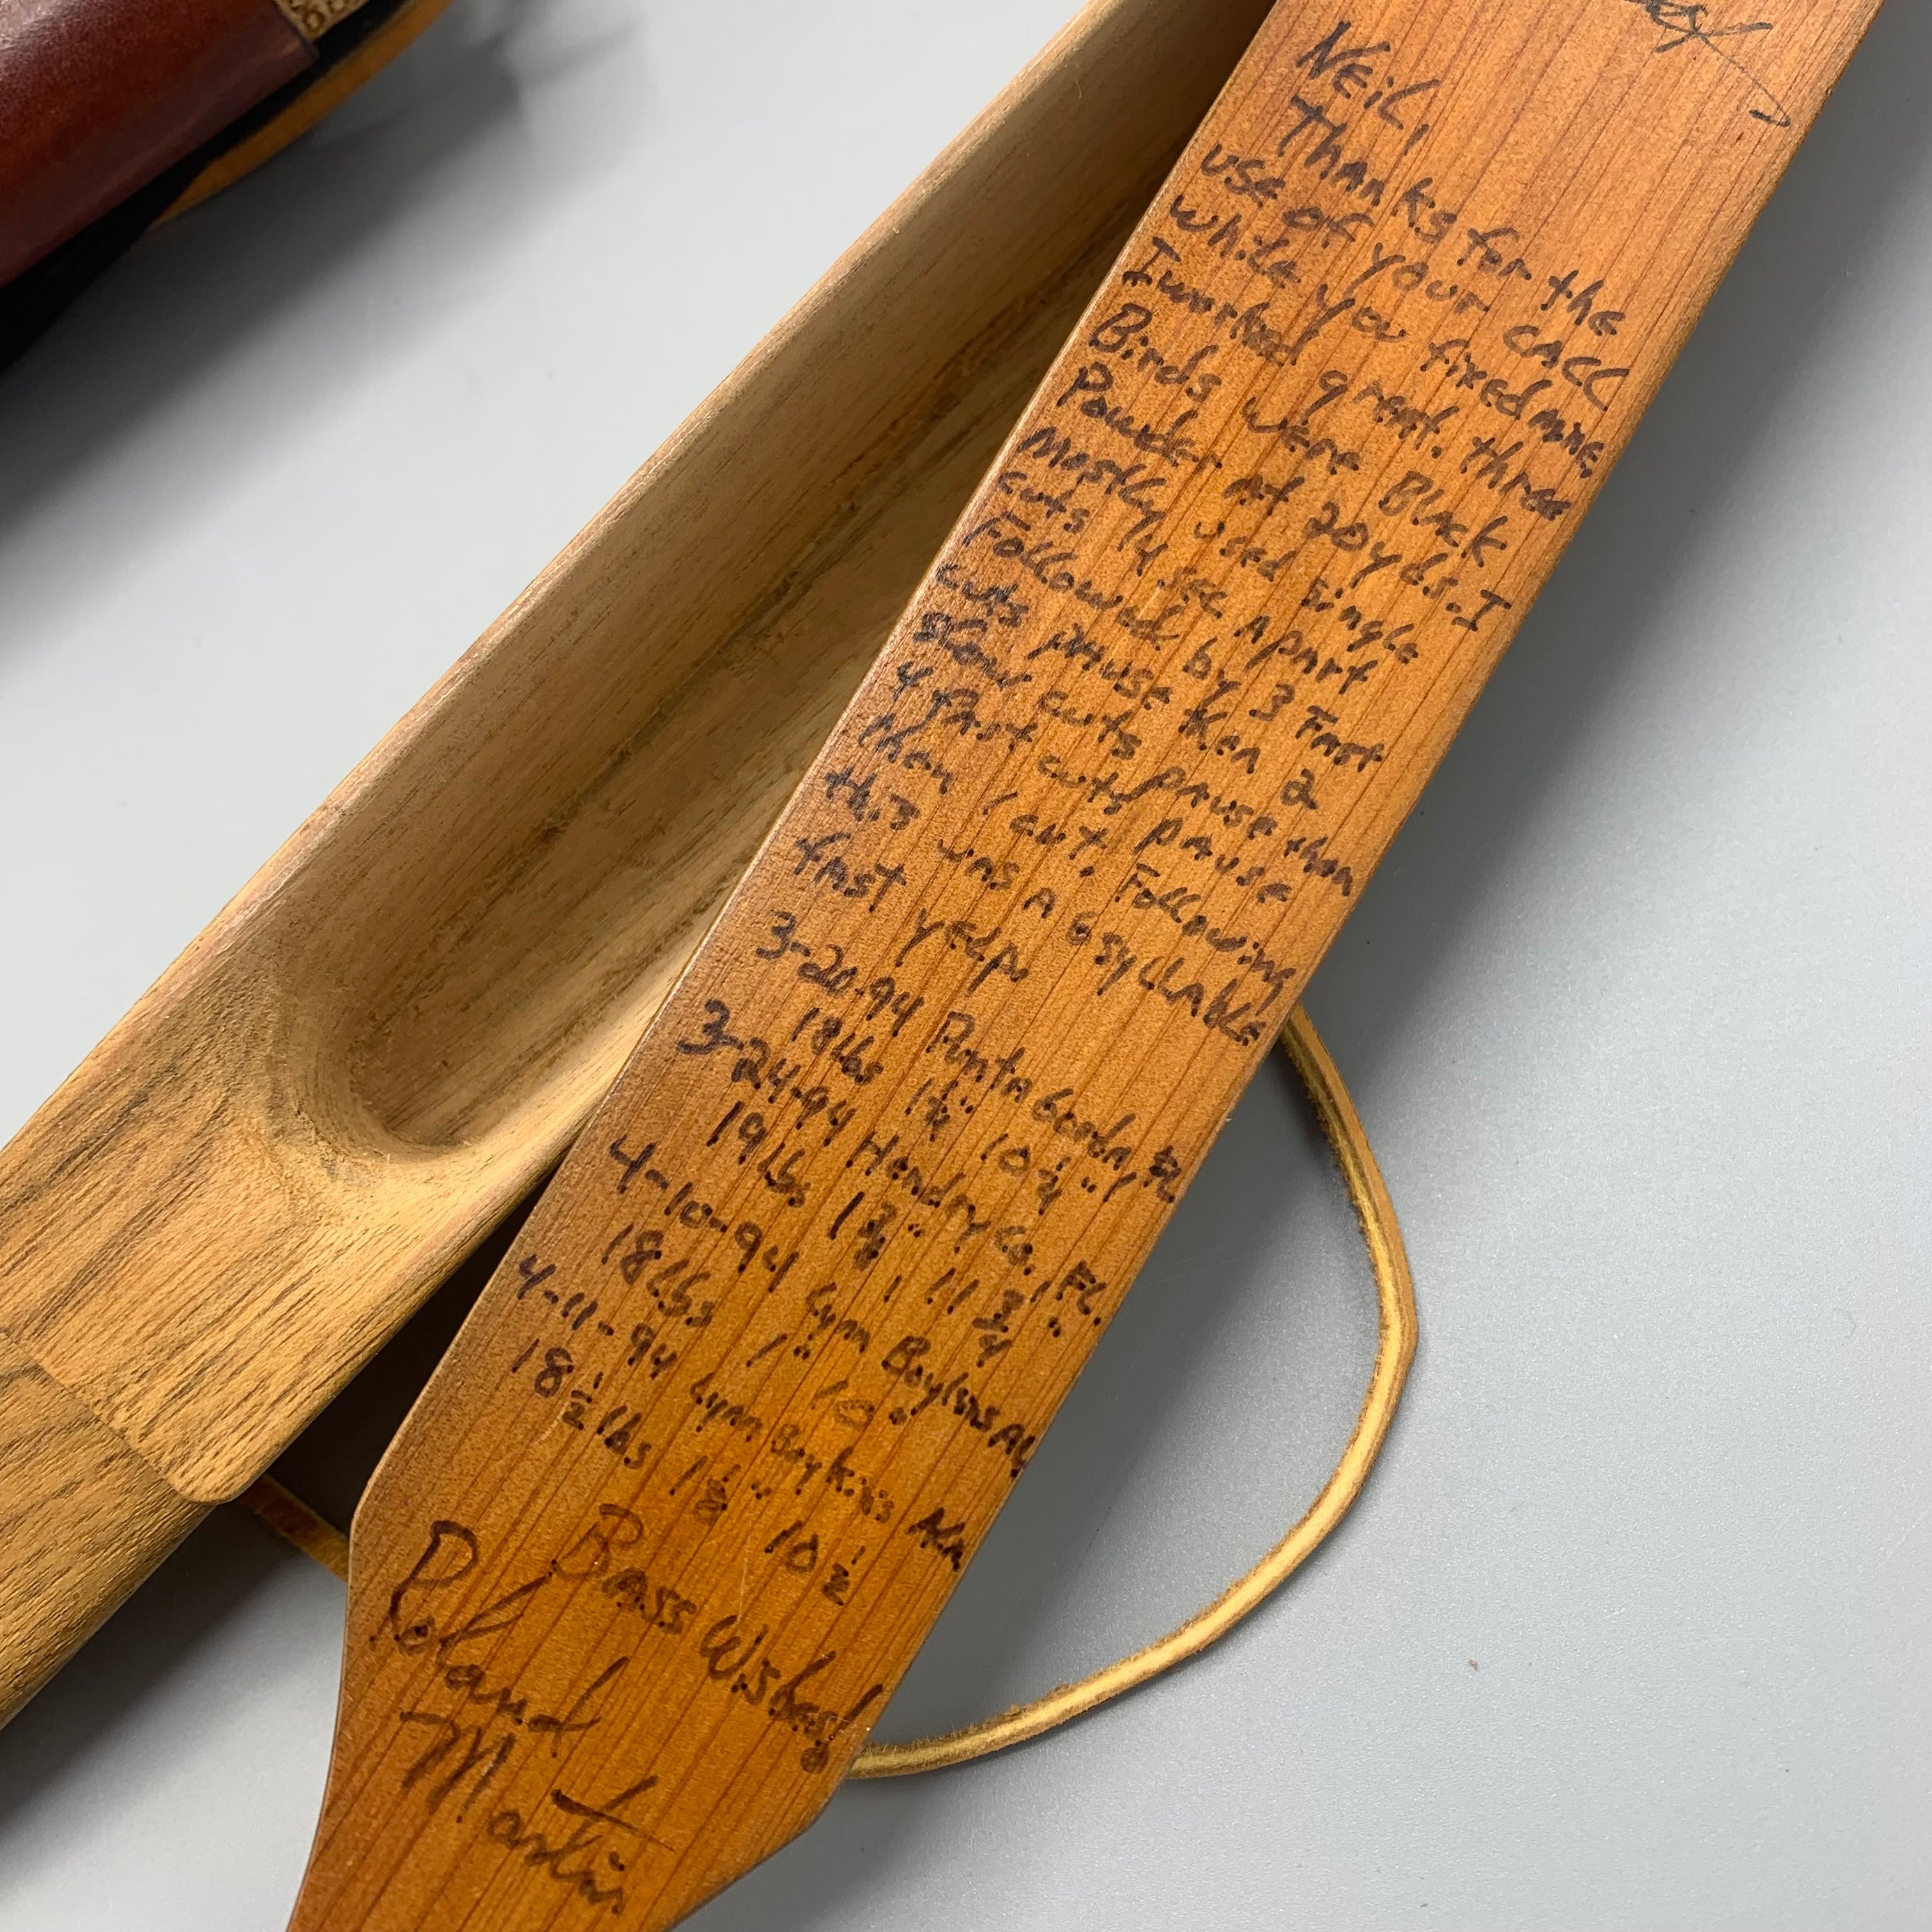 NEIL,
Thanks for the
use of your CALL
while you fixed mine.
I worked great. three
Birds were Black
Powder at 20 yds. I
Mostly used single
cuts 1/4 sec Apart
Followed by 3 Fast
cuts pause then 2
slow cuts pause then
4 fast cuts pause
then 1 cut. Following
this was A 6 syllable
fast yelp.
3-20-94 Punta Gorda, FL.
18 lbs 1 1/8" 10 1/4"
3-24-94 Hendry Co., FL.
19 lbs 1 3/8", 11 3/4"
4-10-94 Lynn Boykins AL
18 lbs 1" 10"
4-11-94 Lynn Boykins Ala
18 1/2 lbs 1 1/8" 10 1/2
Bass Wishes
Roland
Martin